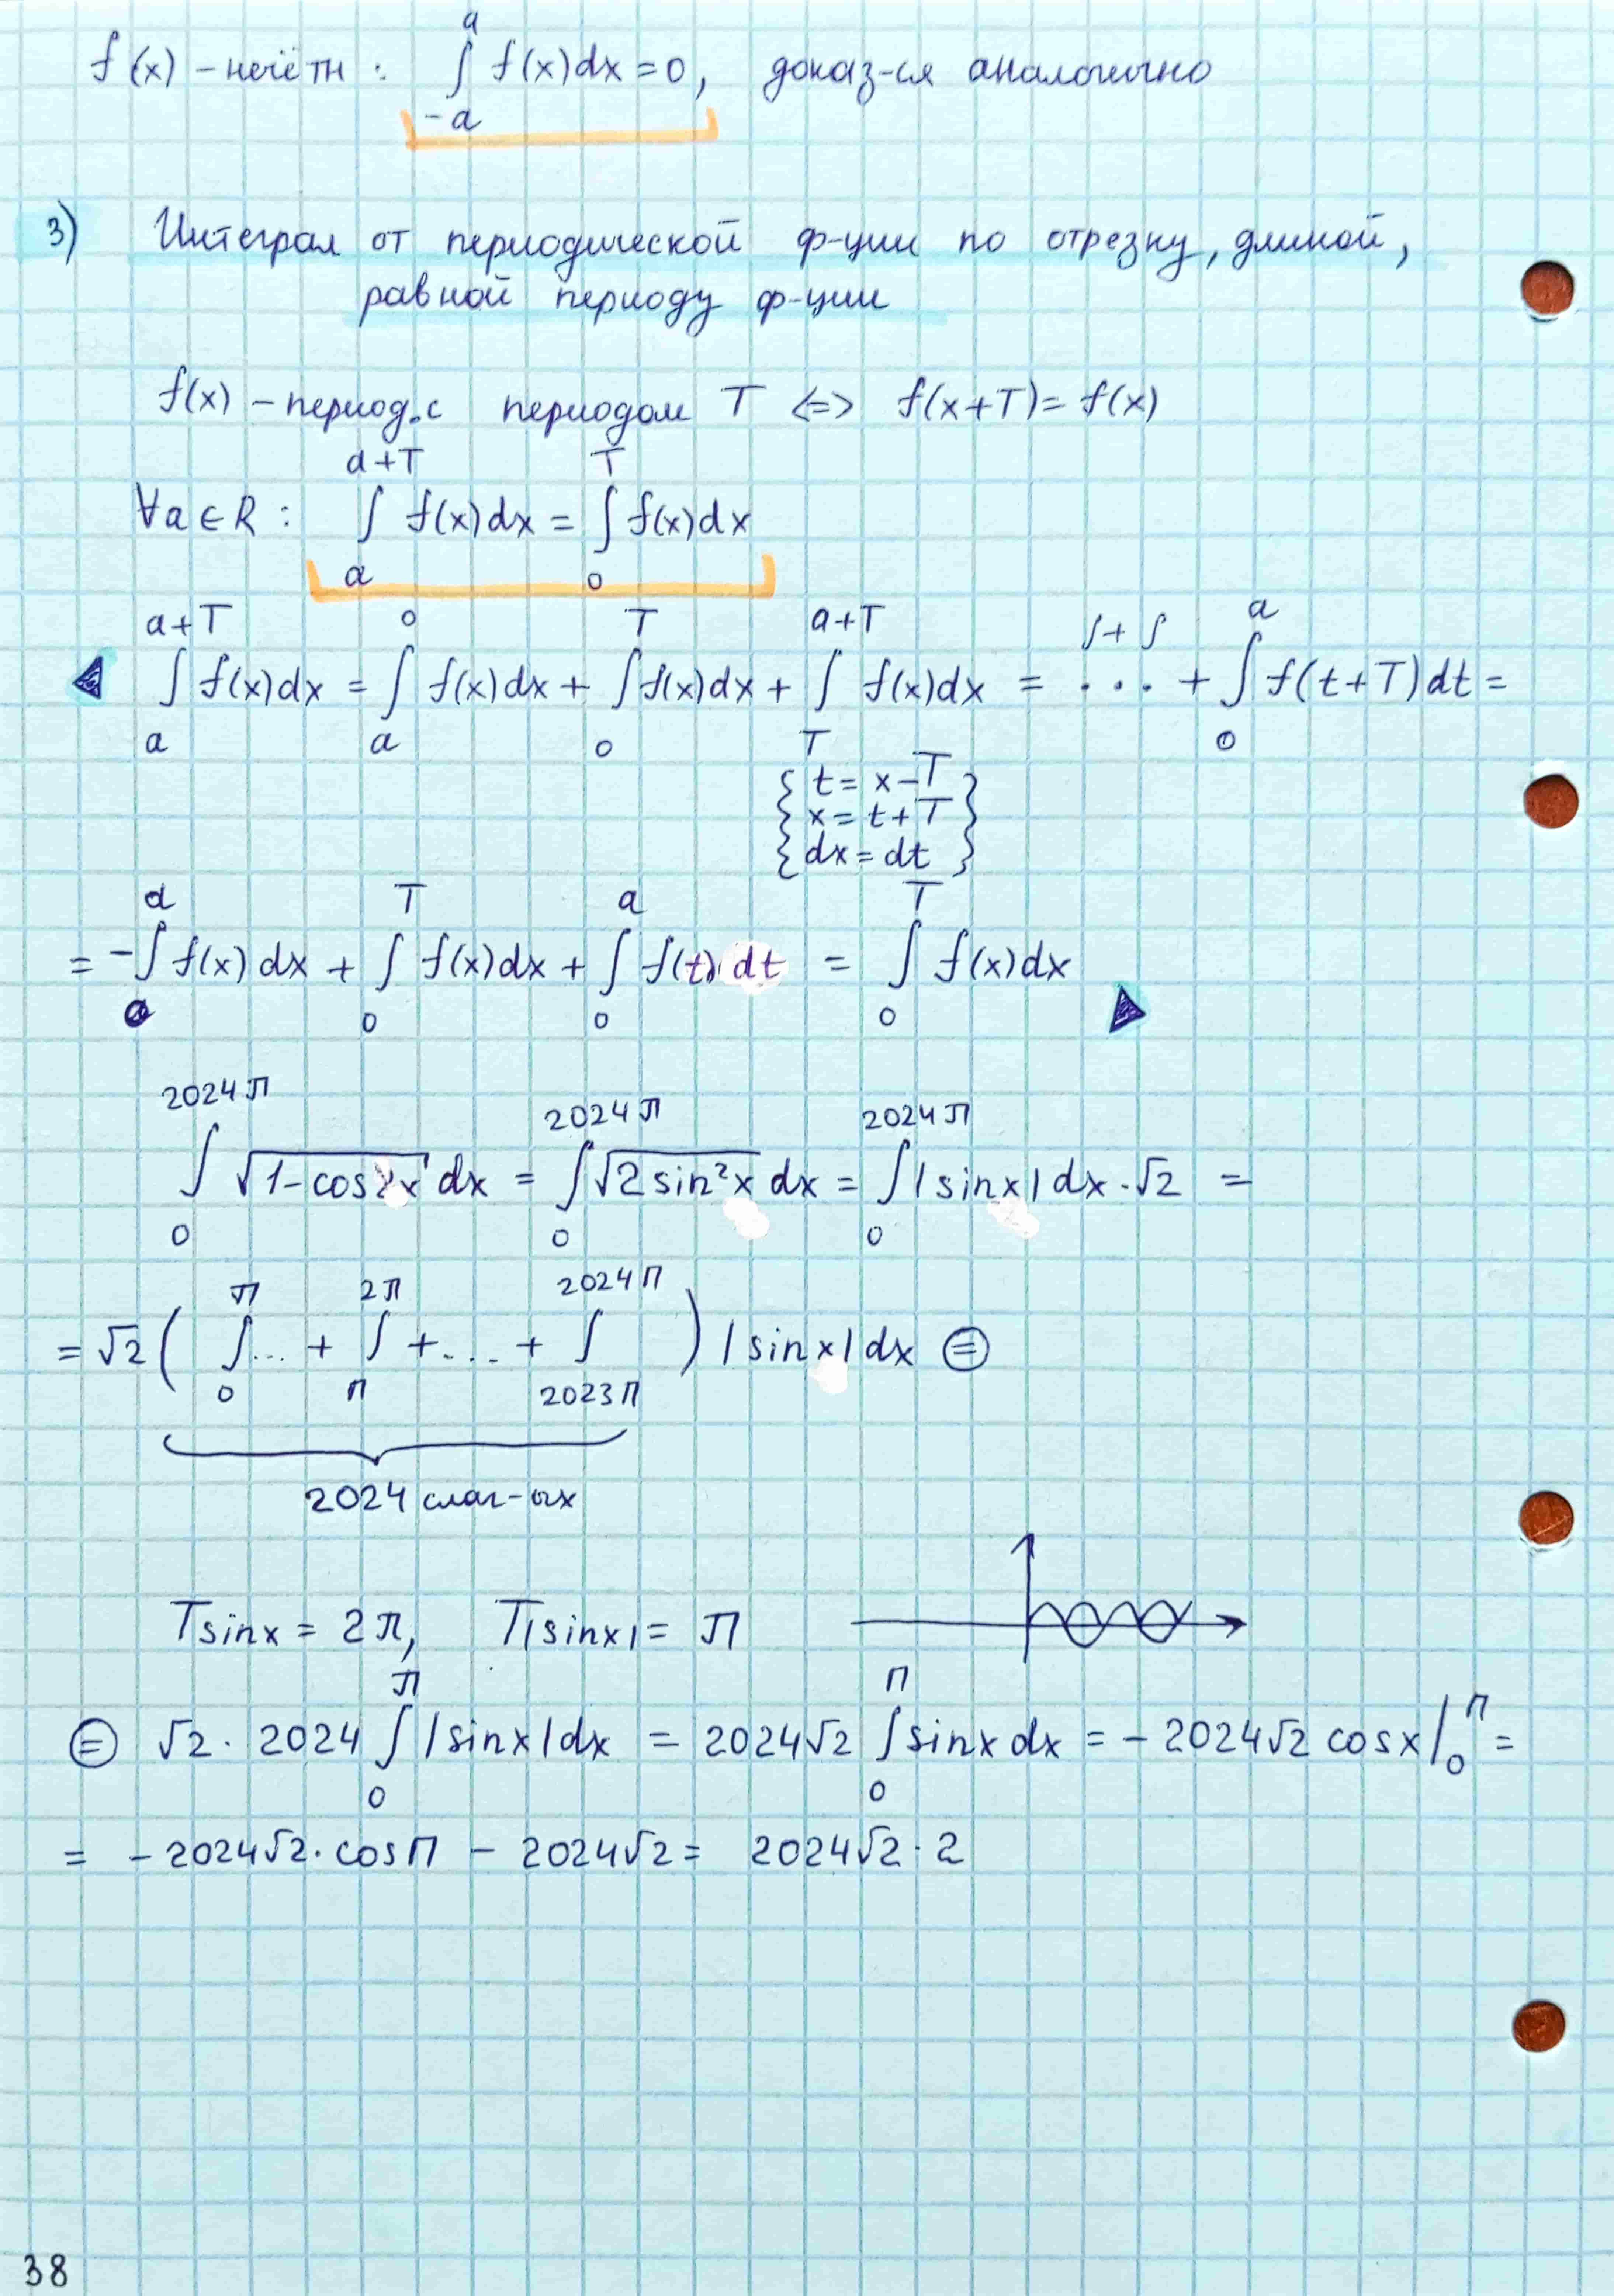 f(x) – нечётн : ∫_{-a}^{a} f(x)dx = 0, доказ-ся аналогично
3) Интеграл от периодической ф-ции по отрезку, длиной,
равной периоду ф-ции
f(x) – период. с периодом T <=> f(x+T) = f(x)
∀a ∈ R : ∫_{a}^{a+T} f(x)dx = ∫_{0}^{T} f(x)dx
◀ ∫_{a}^{a+T} f(x)dx = ∫_{a}^{0} f(x)dx + ∫_{0}^{T} f(x)dx + ∫_{T}^{a+T} f(x)dx = ∫ + ∫ ... + ∫_{0}^{a} f(t+T)dt =
{ t = x – T }
{ x = t + T }
{ dx = dt }
= –∫_{0}^{a} f(x)dx + ∫_{0}^{T} f(x)dx + ∫_{0}^{a} f(t)dt = ∫_{0}^{T} f(x)dx ▶
∫_{0}^{2024π} √(1–cos2x) dx = ∫_{0}^{2024π} √(2sin²x) dx = ∫_{0}^{2024π} |sinx| dx · √2 =
= √2 ( ∫_{0}^{π} ... + ∫_{π}^{2π} + ... + ∫_{2023π}^{2024π} ) |sinx| dx ⊜
2024 слаг-ых
T sinx = 2π, T|sinx| = π
⊜ √2 · 2024 ∫_{0}^{π} |sinx| dx = 2024√2 ∫_{0}^{π} sinx dx = – 2024√2 cosx |_{0}^{π} =
= – 2024√2 · cosπ – 2024√2 = 2024√2 · 2
38